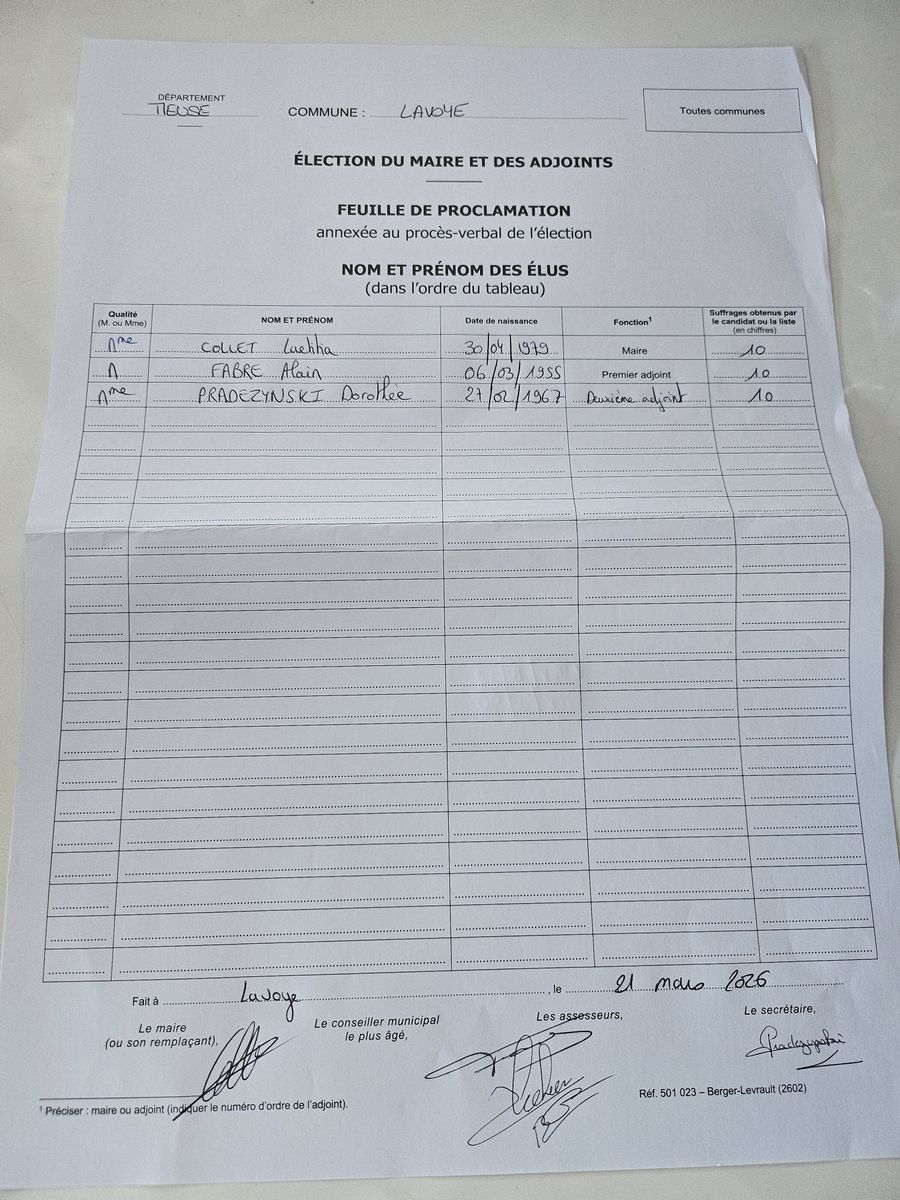 DÉPARTEMENT
MEUSE
COMMUNE : LAVOYE
Toutes communes
ÉLECTION DU MAIRE ET DES ADJOINTS
FEUILLE DE PROCLAMATION
annexée au procès-verbal de l'élection
NOM ET PRÉNOM DES ÉLUS
(dans l'ordre du tableau)
Qualité (M. ou Mme) NOM ET PRÉNOM Date de naissance Fonction¹ Suffrages obtenus par le candidat ou la liste (en chiffres)
Mme COLLET Laetitia 30/04/1979 Maire 10
M FABRE Alain 06/03/1955 Premier adjoint 10
Mme PRADEZYNSKI Dorothée 27/02/1967 Deuxième adjoint 10
Fait à Lavoye, le 21 mars 2026
Le maire (ou son remplaçant), Le conseiller municipal le plus âgé, Les assesseurs, Le secrétaire,
Pradezynski
Réf. 501 023 – Berger-Levrault (2602)
¹ Préciser : maire ou adjoint (indiquer le numéro d'ordre de l'adjoint).